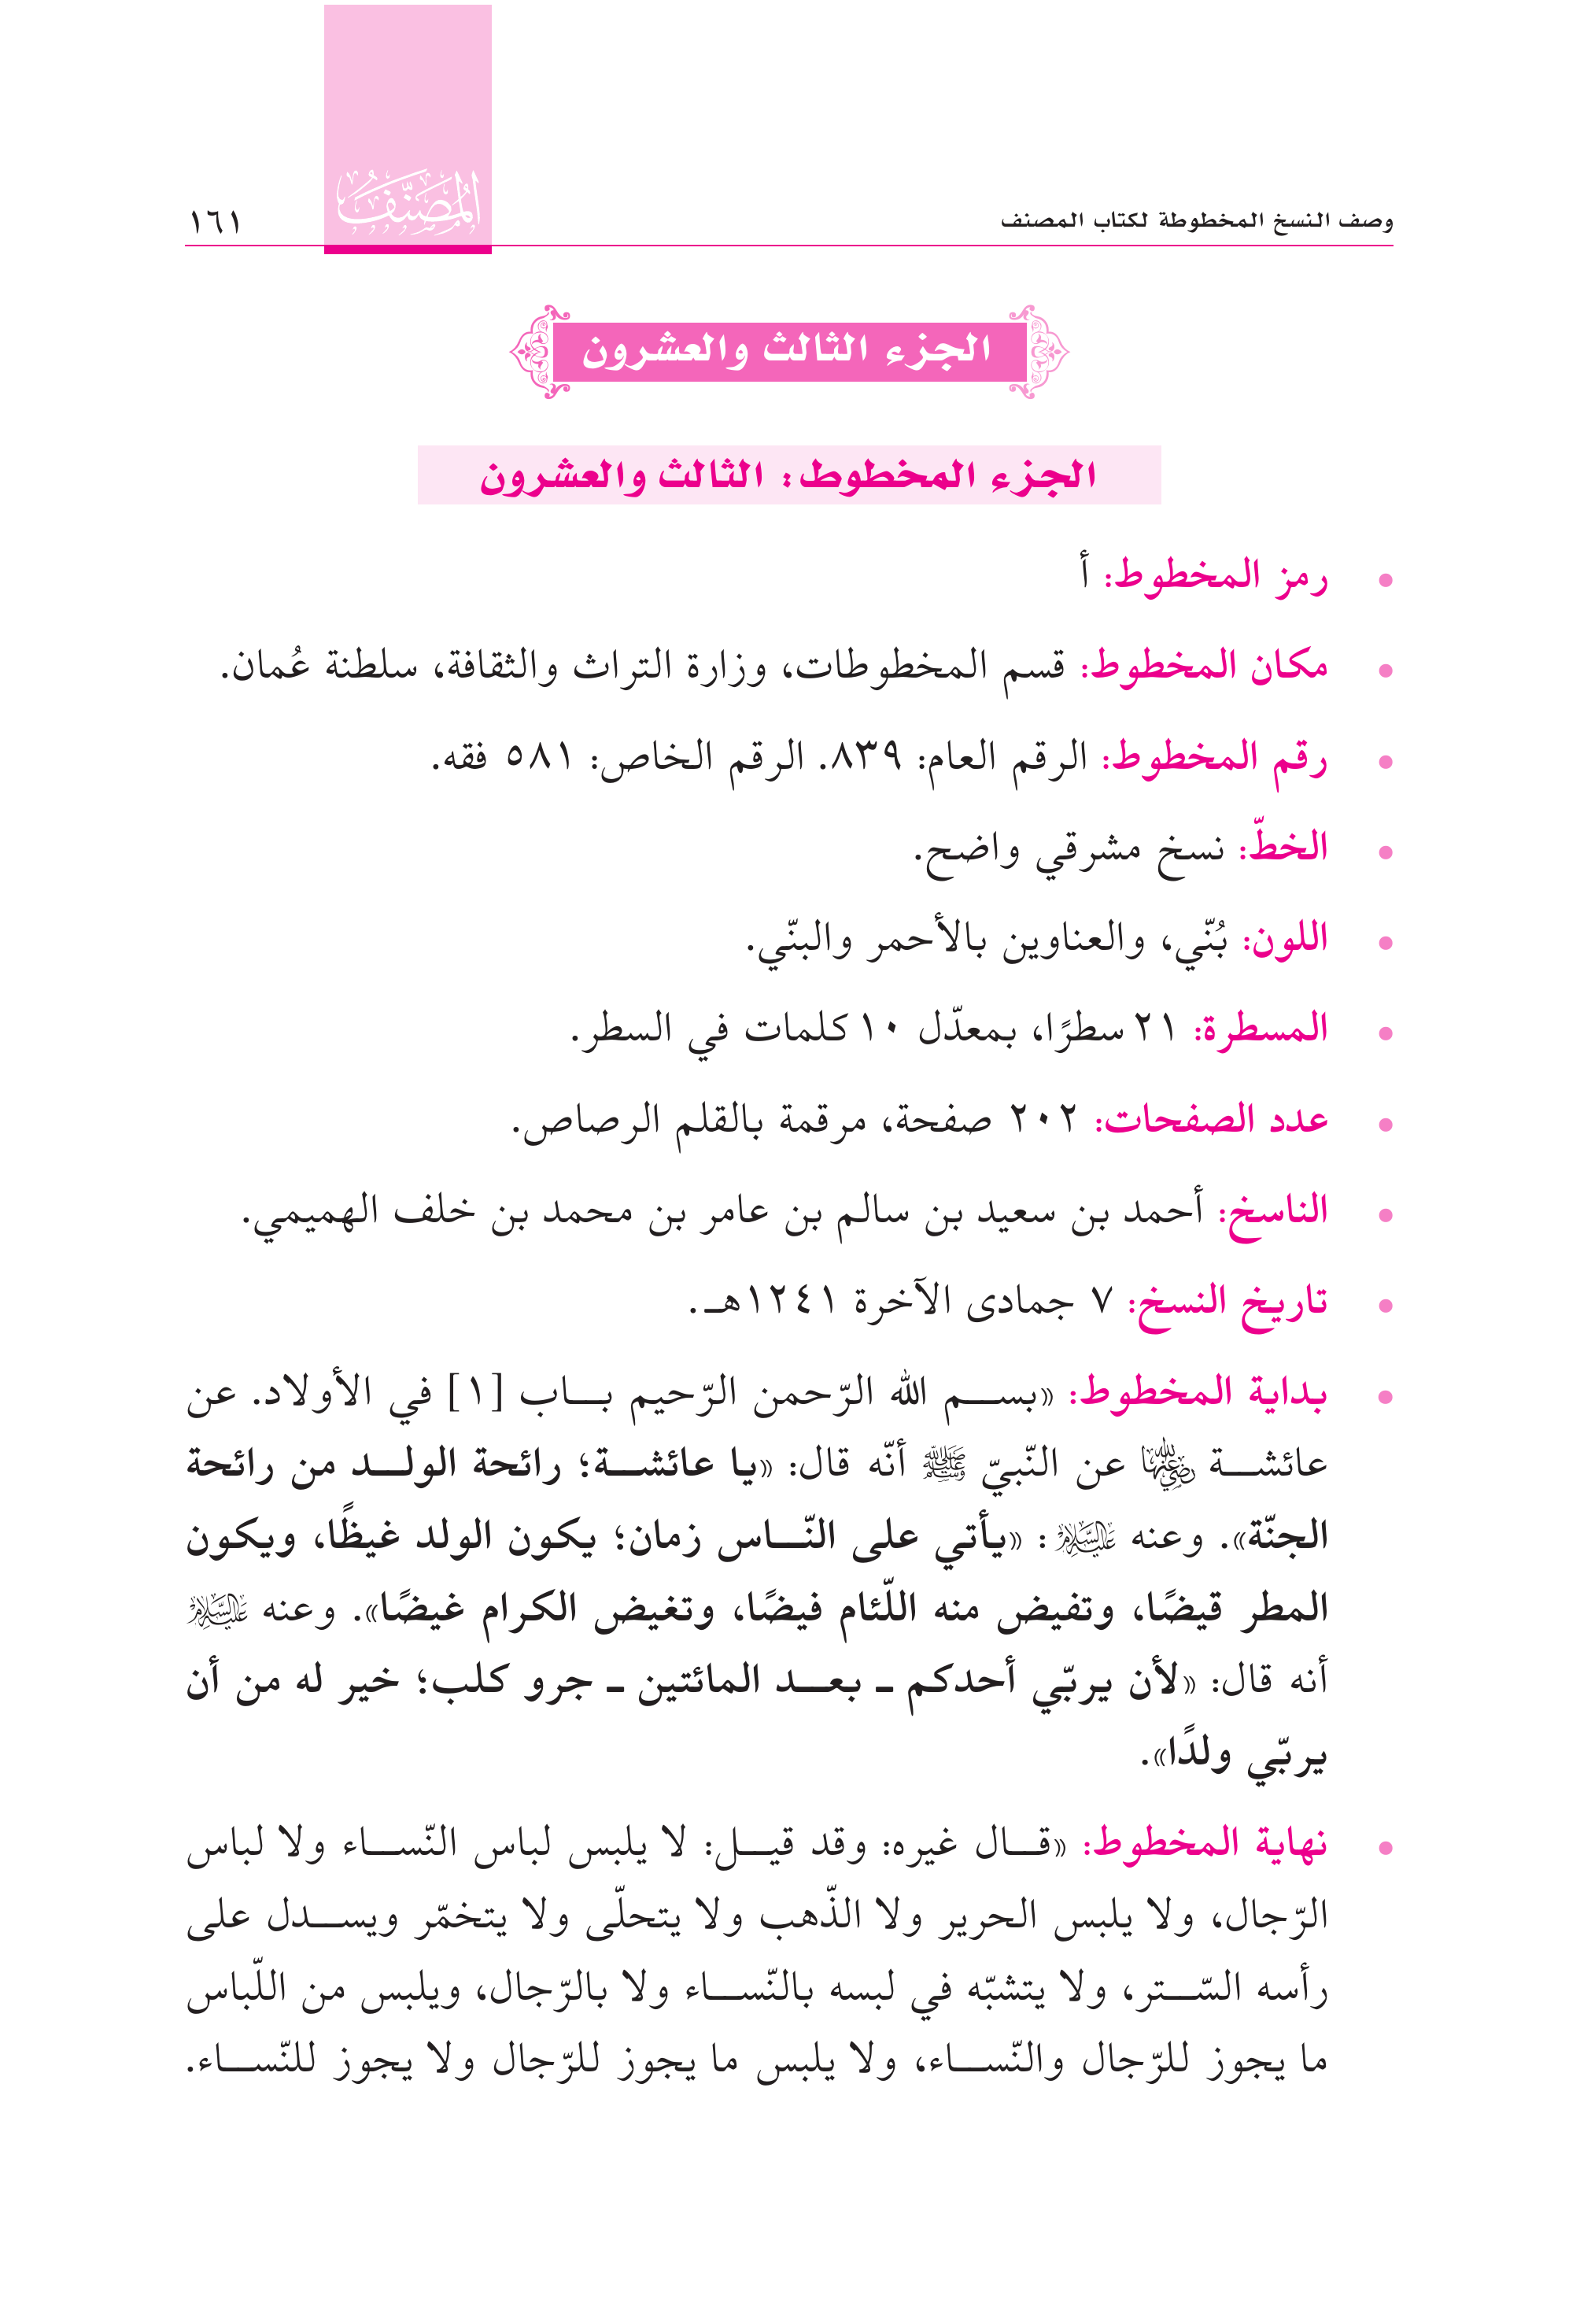 وصف النسخ المخطوطة لكتاب المصنف
المُصَنَّفُ
١٦١
الجزء الثالث والعشرون
الجزء المخطوط: الثالث والعشرون
• رمز المخطوط: أ
• مكان المخطوط: قسم المخطوطات، وزارة التراث والثقافة، سلطنة عُمان.
• رقم المخطوط: الرقم العام: ٨٣٩. الرقم الخاص: ٥٨١ فقه.
• الخطّ: نسخ مشرقي واضح.
• اللون: بُنّي، والعناوين بالأحمر والبنّي.
• المسطرة: ٢١ سطرًا، بمعدّل ١٠ كلمات في السطر.
• عدد الصفحات: ٢٠٢ صفحة، مرقمة بالقلم الرصاص.
• الناسخ: أحمد بن سعيد بن سالم بن عامر بن محمد بن خلف الهميمي.
• تاريخ النسخ: ٧ جمادى الآخرة ١٢٤١هـ.
• بداية المخطوط: «بسم الله الرّحمن الرّحيم باب [١] في الأولاد. عن
عائشة رضي الله عنها عن النّبيّ ﷺ أنّه قال: «يا عائشة؛ رائحة الولد من رائحة
الجنّة». وعنه عليه السلام: «يأتي على النّاس زمان؛ يكون الولد غيظًا، ويكون
المطر قيضًا، وتفيض منه اللّئام فيضًا، وتغيض الكرام غيضًا». وعنه عليه السلام
أنه قال: «لأن يربّي أحدكم ـ بعد المائتين ـ جرو كلب؛ خير له من أن
يربّي ولدًا».
• نهاية المخطوط: «قال غيره: وقد قيل: لا يلبس لباس النّساء ولا لباس
الرّجال، ولا يلبس الحرير ولا الذّهب ولا يتحلّى ولا يتخمّر ويسدل على
رأسه السّتر، ولا يتشبّه في لبسه بالنّساء ولا بالرّجال، ويلبس من اللّباس
ما يجوز للرّجال والنّساء، ولا يلبس ما يجوز للرّجال ولا يجوز للنّساء.